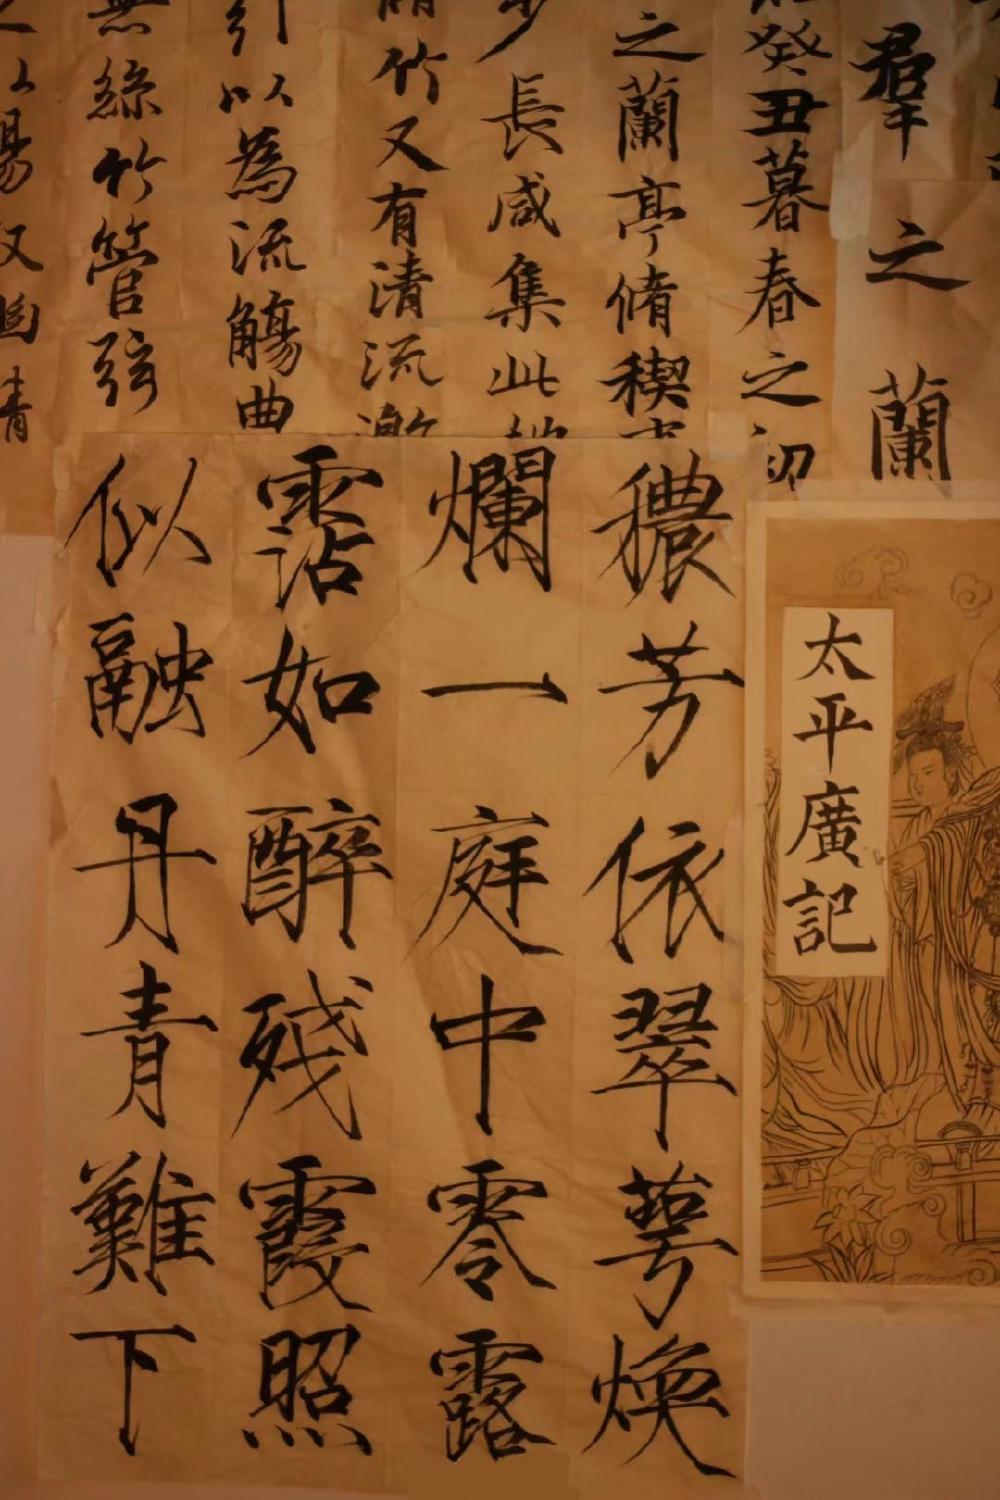 羣之蘭
癸丑暮春之初
之蘭亭脩稧
少長咸集此
竹又有清流激
引以為流觴曲
無絲竹管弦
太平廣記
穠芳依翠萼煥
爛一庭中零露
霑如醉殘霞照
似融丹青難下